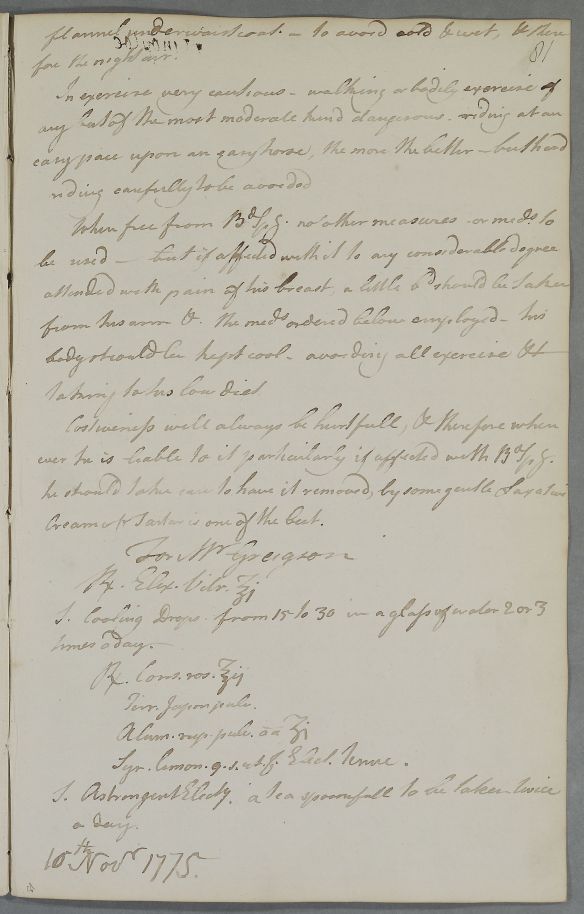 flannel underwaistcoat. – to avoid cold & wet, & there
for the night air.
81
In exercise very cautious – walking or bodily exercise of
any but of the most moderate kind dangerous. riding at an
easy pace upon an easy horse, the more the better – but hard
riding carefully to be avoided
When free from Bd/spg. no other measures or meds. to
be used – but if affected with it to any considerable degree
attended with pain of his breast, a little bd should be taken
from his arm & the meds ordered below employed – his
body should be kept cool – avoiding all exercise &
taking to his low diet.
Costiveness will always be hurtfull, & therefore when
ever he is liable to it particularly if affected with Bd/spg.
he should take care to have it removed, by some gentle Laxative
Cream of Tartar is one of the best.
For Mr Greigson
Rx. Elix. Vitr. ℥j
S. Cooling Drops from 15 to 30 in a glass of water 2 or 3
times a day. –
Rx. Cons. ros. ℥ij
Terr. Japon pulv.
Alum. rup. pulv. āā ʒj
Syr. limon. q. s. ut. f. Elect. tenue.
S. Astringent Electy. a tea spoonfull to be taken twice
a day.
10th Novr 1775.